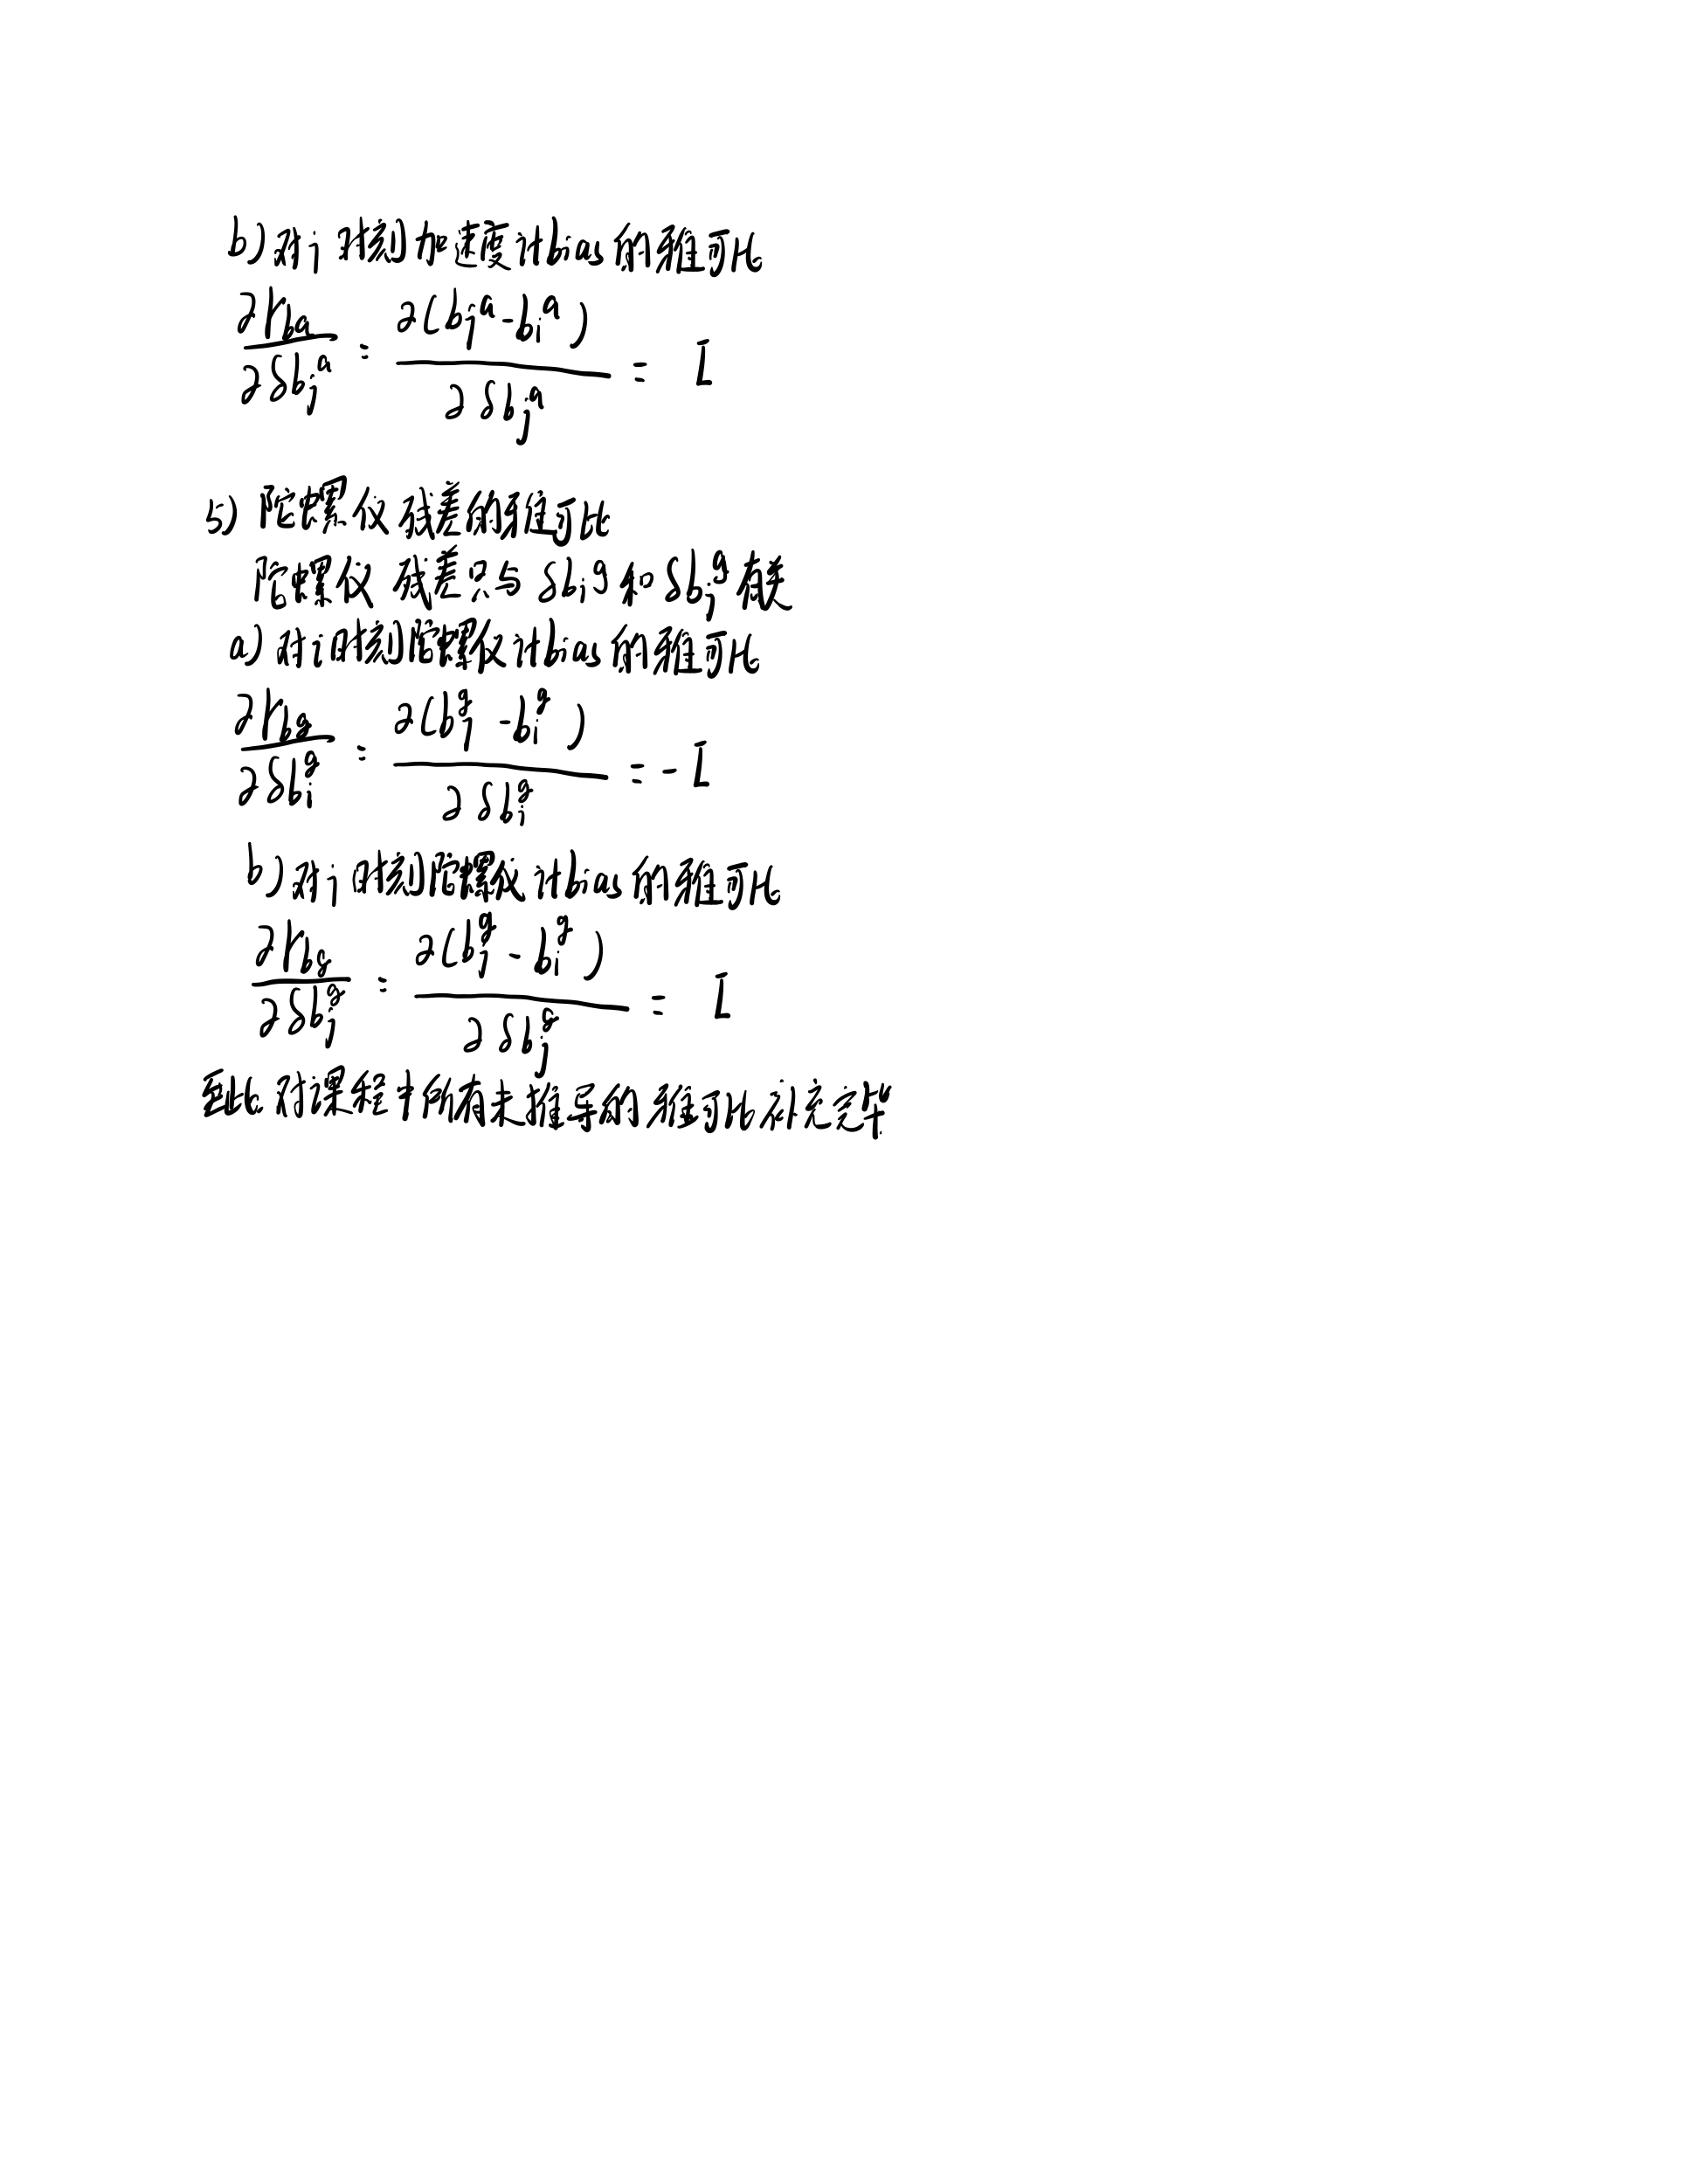 b) 对j 时刻加速度计bias的雅可比
∂r_{ba}/∂δb_j^a = ∂(b_j^a - b_i^a)/∂δb_j^a = I
5) 陀螺仪残差的雅可比
陀螺仪残差只与 δb_i^g 和 δb_j^g 有关
a) 对i时刻陀螺仪计bias的雅可比
∂r_{bg}/∂δb_i^g = ∂(b_j^g - b_i^g)/∂δb_i^g = -I
b) 对j时刻陀螺仪计bias的雅可比
∂r_{bg}/∂δb_j^g = ∂(b_j^g - b_i^g)/∂δb_j^g = I
至此 对课程中所有未推导的雅可比补充完毕